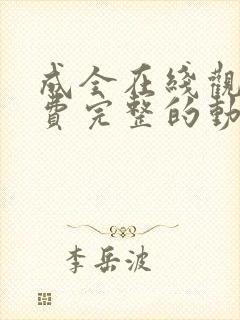 成全在綫觀
費完整的動
李岳波